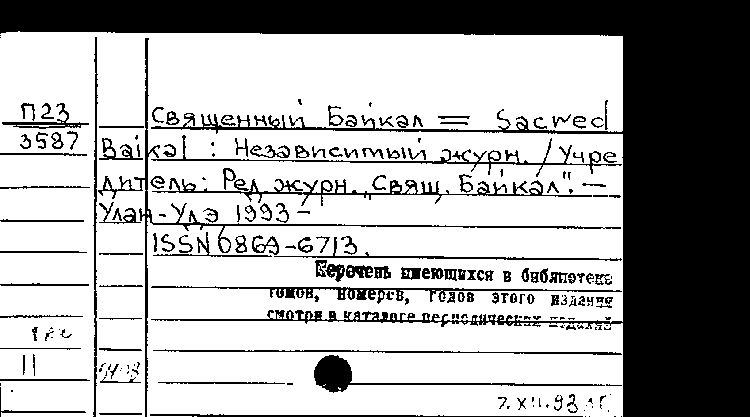 П23
3587
Священный Байкал = Sacred
Baikal : Независимый журн. / Учре-
дитель: Ред. журн. „Свящ. Байкал". —
Улан-Удэ 1993 –
ISSN 0869-6713.
Перечень имеющихся в библиотеке
томов, номеров, годов этого издания
смотри в каталоге периодических изданий
11
7.XII.93